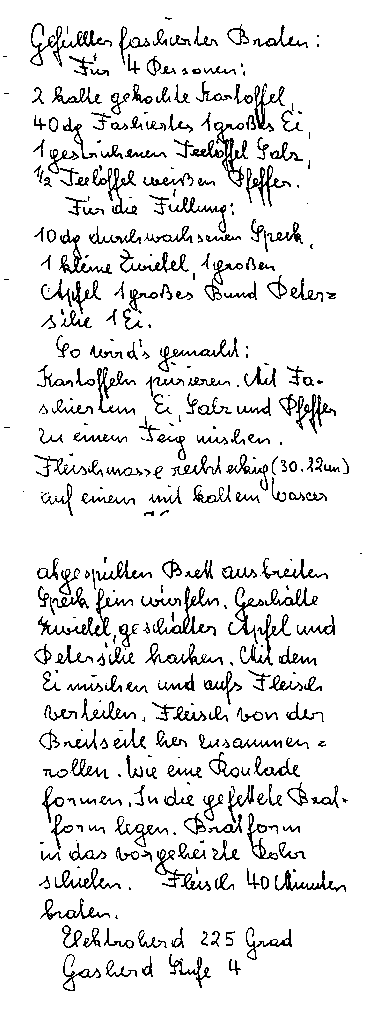 Gefüllter faschierter Braten:
Für 4 Personen:
2 kalte gekochte Kartoffel,
40 dg Faschiertes 1 großes Ei,
1 gestrichenen Teelöffel Salz,
1/2 Teelöffel weißen Pfeffer.
Für die Füllung:
10 dg durchwachsenen Speck,
1 kleine Zwiebel, 1 großen
Apfel 1 großes Bund Peter=
silie 1 Ei.
So wird's gemacht:
Kartoffeln pürieren. Mit Fa-
schiertem, Ei, Salz und Pfeffer
zu einem Teig mischen.
Fleischmasse rechteckig (30.22cm)
auf einem mit kaltem Wasser
abgespülten Brett ausbreiten
Speck fein würfeln. Geschälte
Zwiebel, geschälter Apfel und
Petersilie hacken. Mit dem
Ei mischen und aufs Fleisch
verteilen. Fleisch von der
Breitseite her zusammen=
rollen. Wie eine Roulade
formen. In die gefettete Brat-
form legen. Bratform
in das vorgeheizte Rohr
schieben. Fleisch 40 Minuten
braten.
Elektroherd 225 Grad
Gasherd Stufe 4